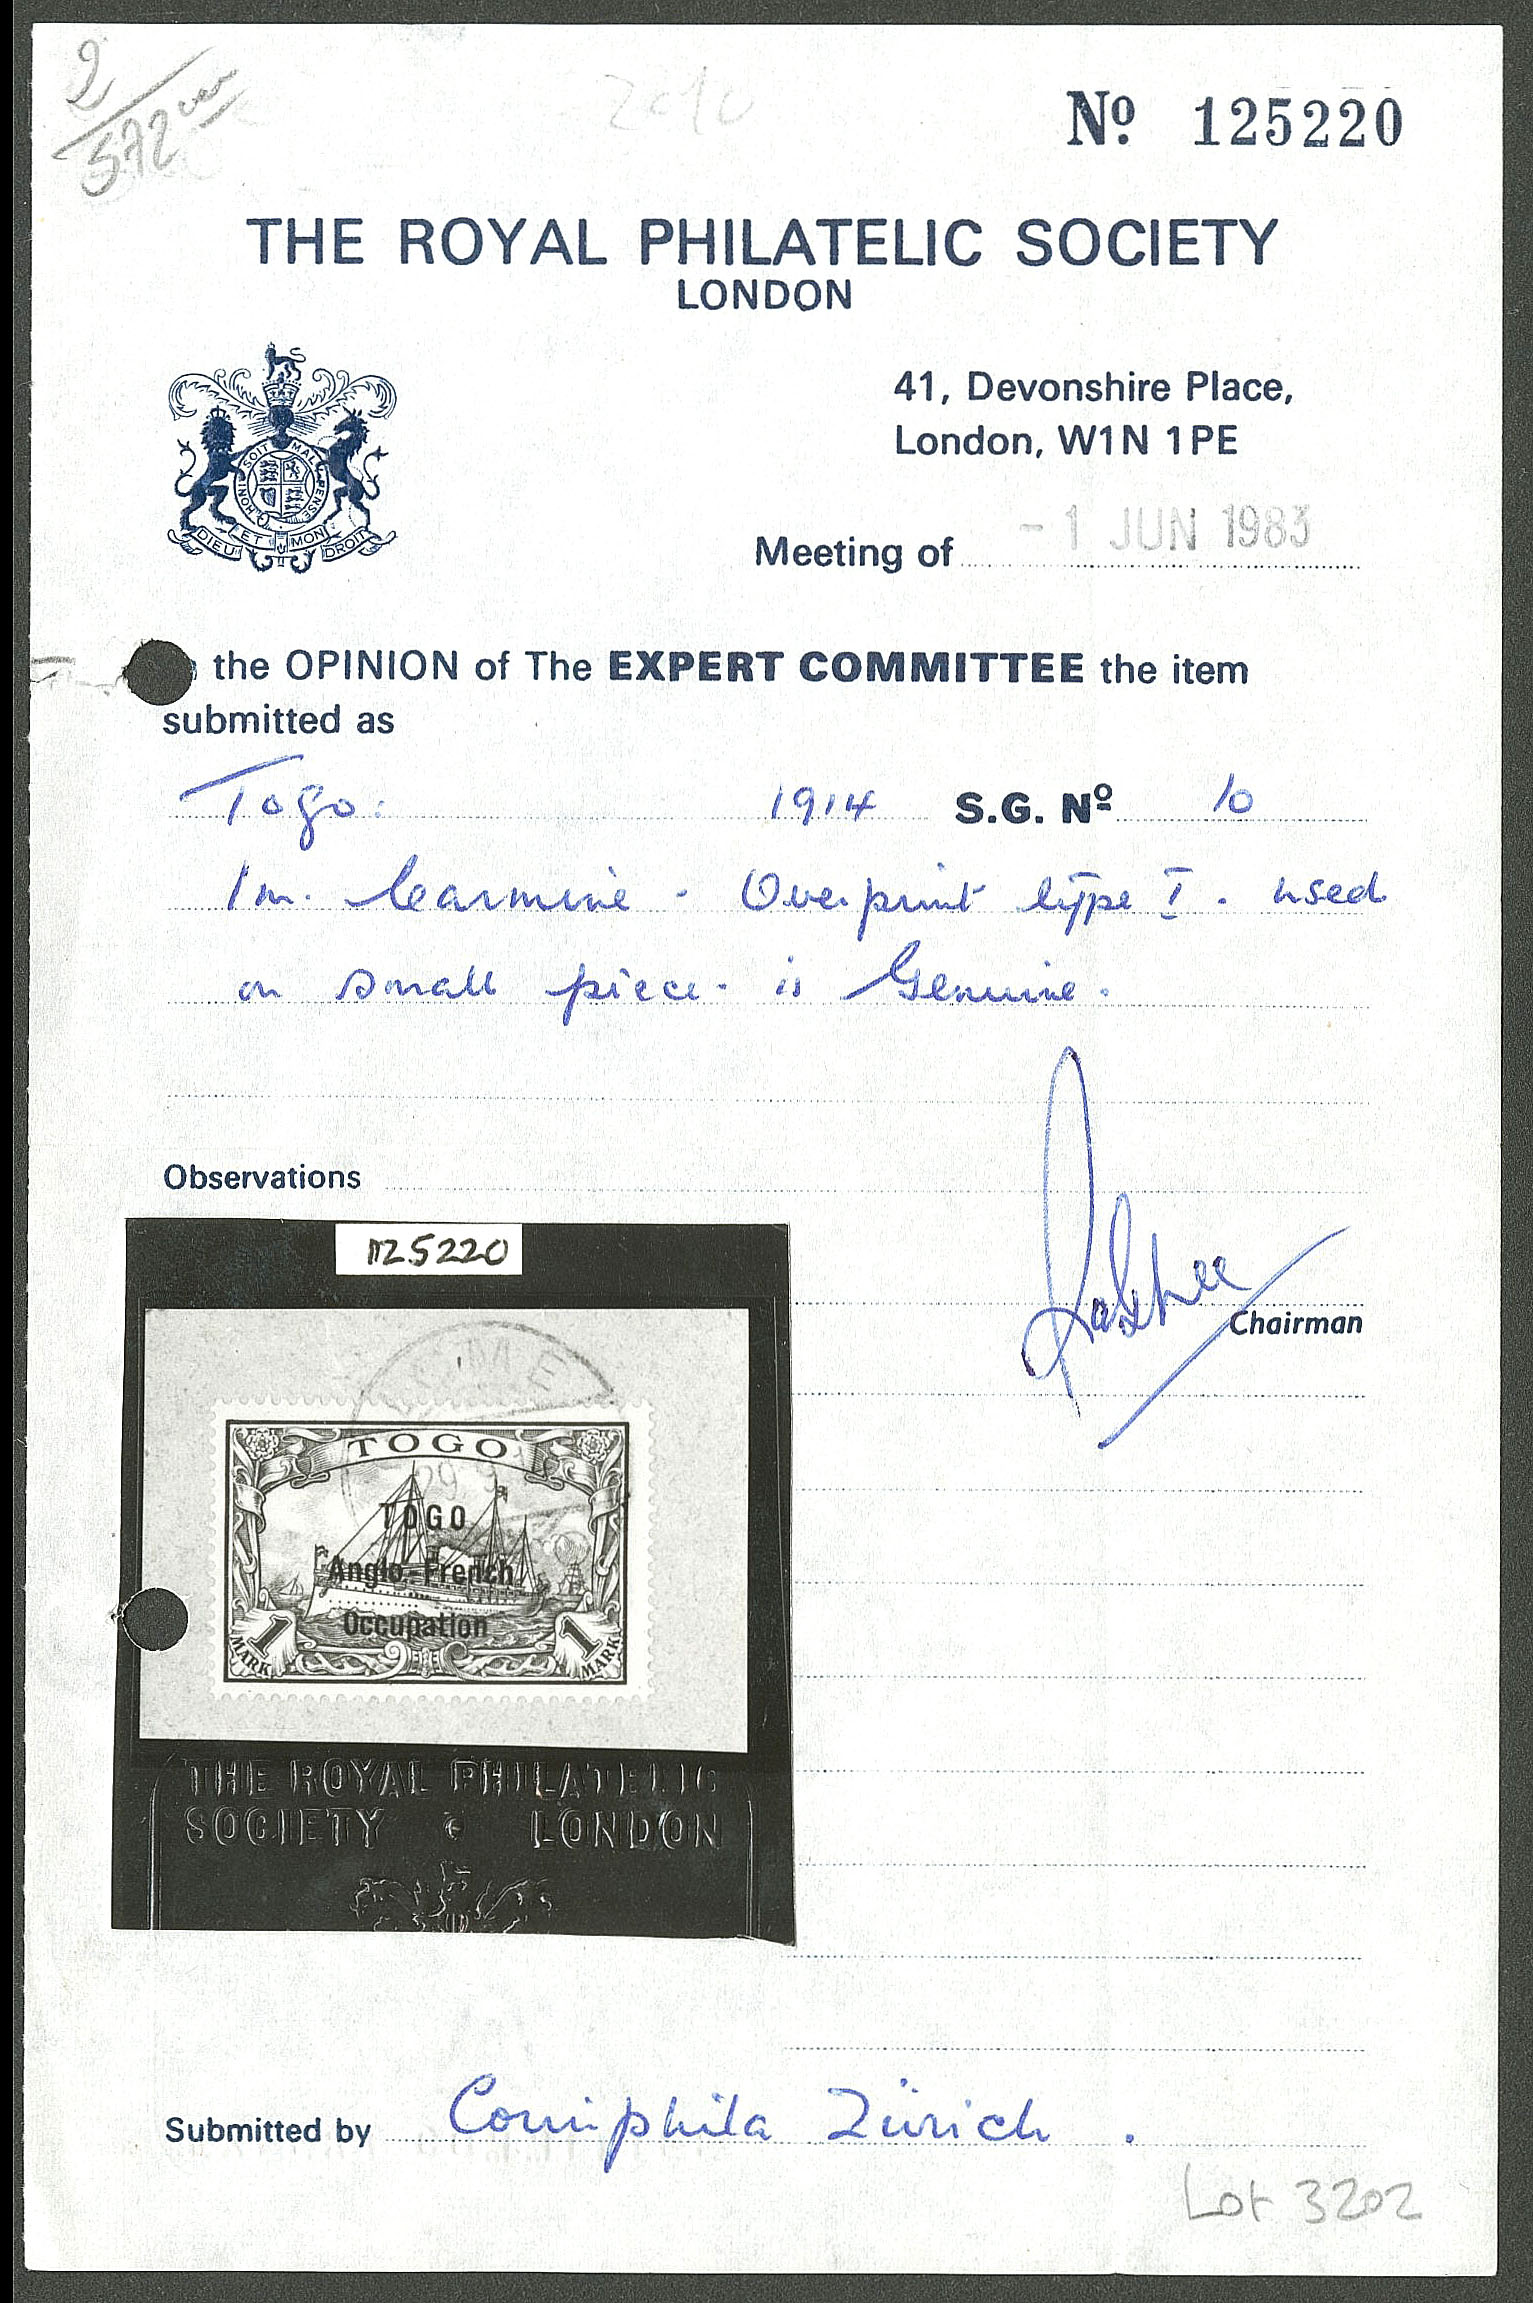 2
572
2010
Nº 125220
THE ROYAL PHILATELIC SOCIETY
LONDON
41, Devonshire Place,
London, W1N 1PE
HONI SOIT MAL PENSE
DIEU ET MON DROIT
- 1 JUN 1983
Meeting of
the OPINION of The EXPERT COMMITTEE the item
submitted as
Togo. 1914 S.G. Nº 10
1m. Carmine. Overprint type I. used
on small piece. is Genuine.
Observations
Chairman
125220
TOGO
TOGO
Anglo-French
Occupation
1 MARK 1 MARK
THE ROYAL PHILATELIC
SOCIETY LONDON
Submitted by Corinphila Zürich.
Lot 3202